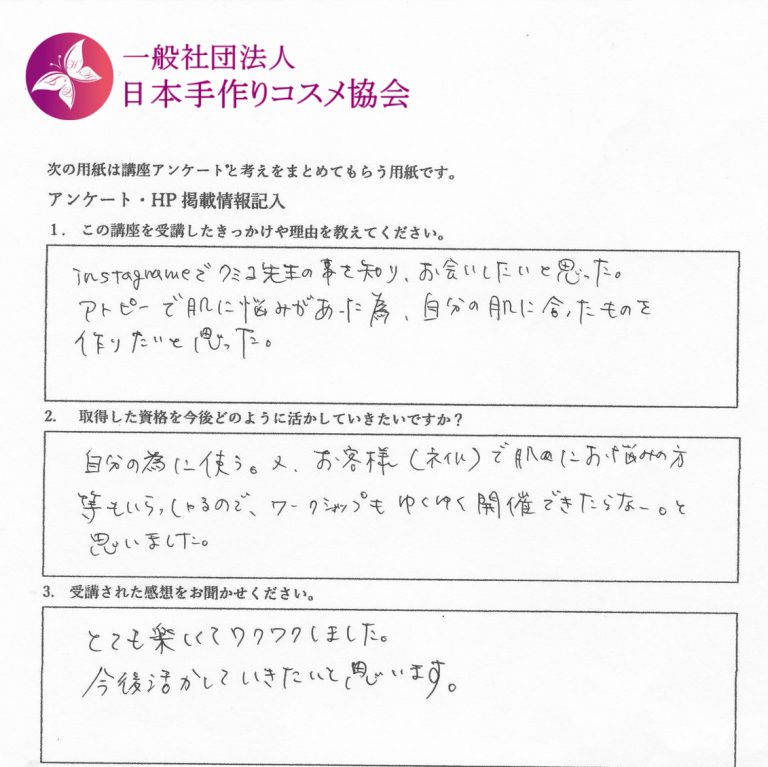 一般社団法人
日本手作りコスメ協会
次の用紙は講座アンケートと考えをまとめてもらう用紙です。
アンケート・HP 掲載情報記入
1. この講座を受講したきっかけや理由を教えてください。
instagrameでクミコ先生の事を知り、お会いしたいと思った。
アトピーで肌に悩みがあった為、自分の肌に合ったものを
作りたいと思った。
2. 取得した資格を今後どのように活かしていきたいですか？
自分の為に使う。又、お客様（ネイル）で肌にお悩みの方
等もいらっしゃるので、ワークショップもゆくゆく開催できたらなー。と
思いました。
3. 受講された感想をお聞かせください。
とても楽しくてワクワクしました。
今後活かしていきたいと思います。